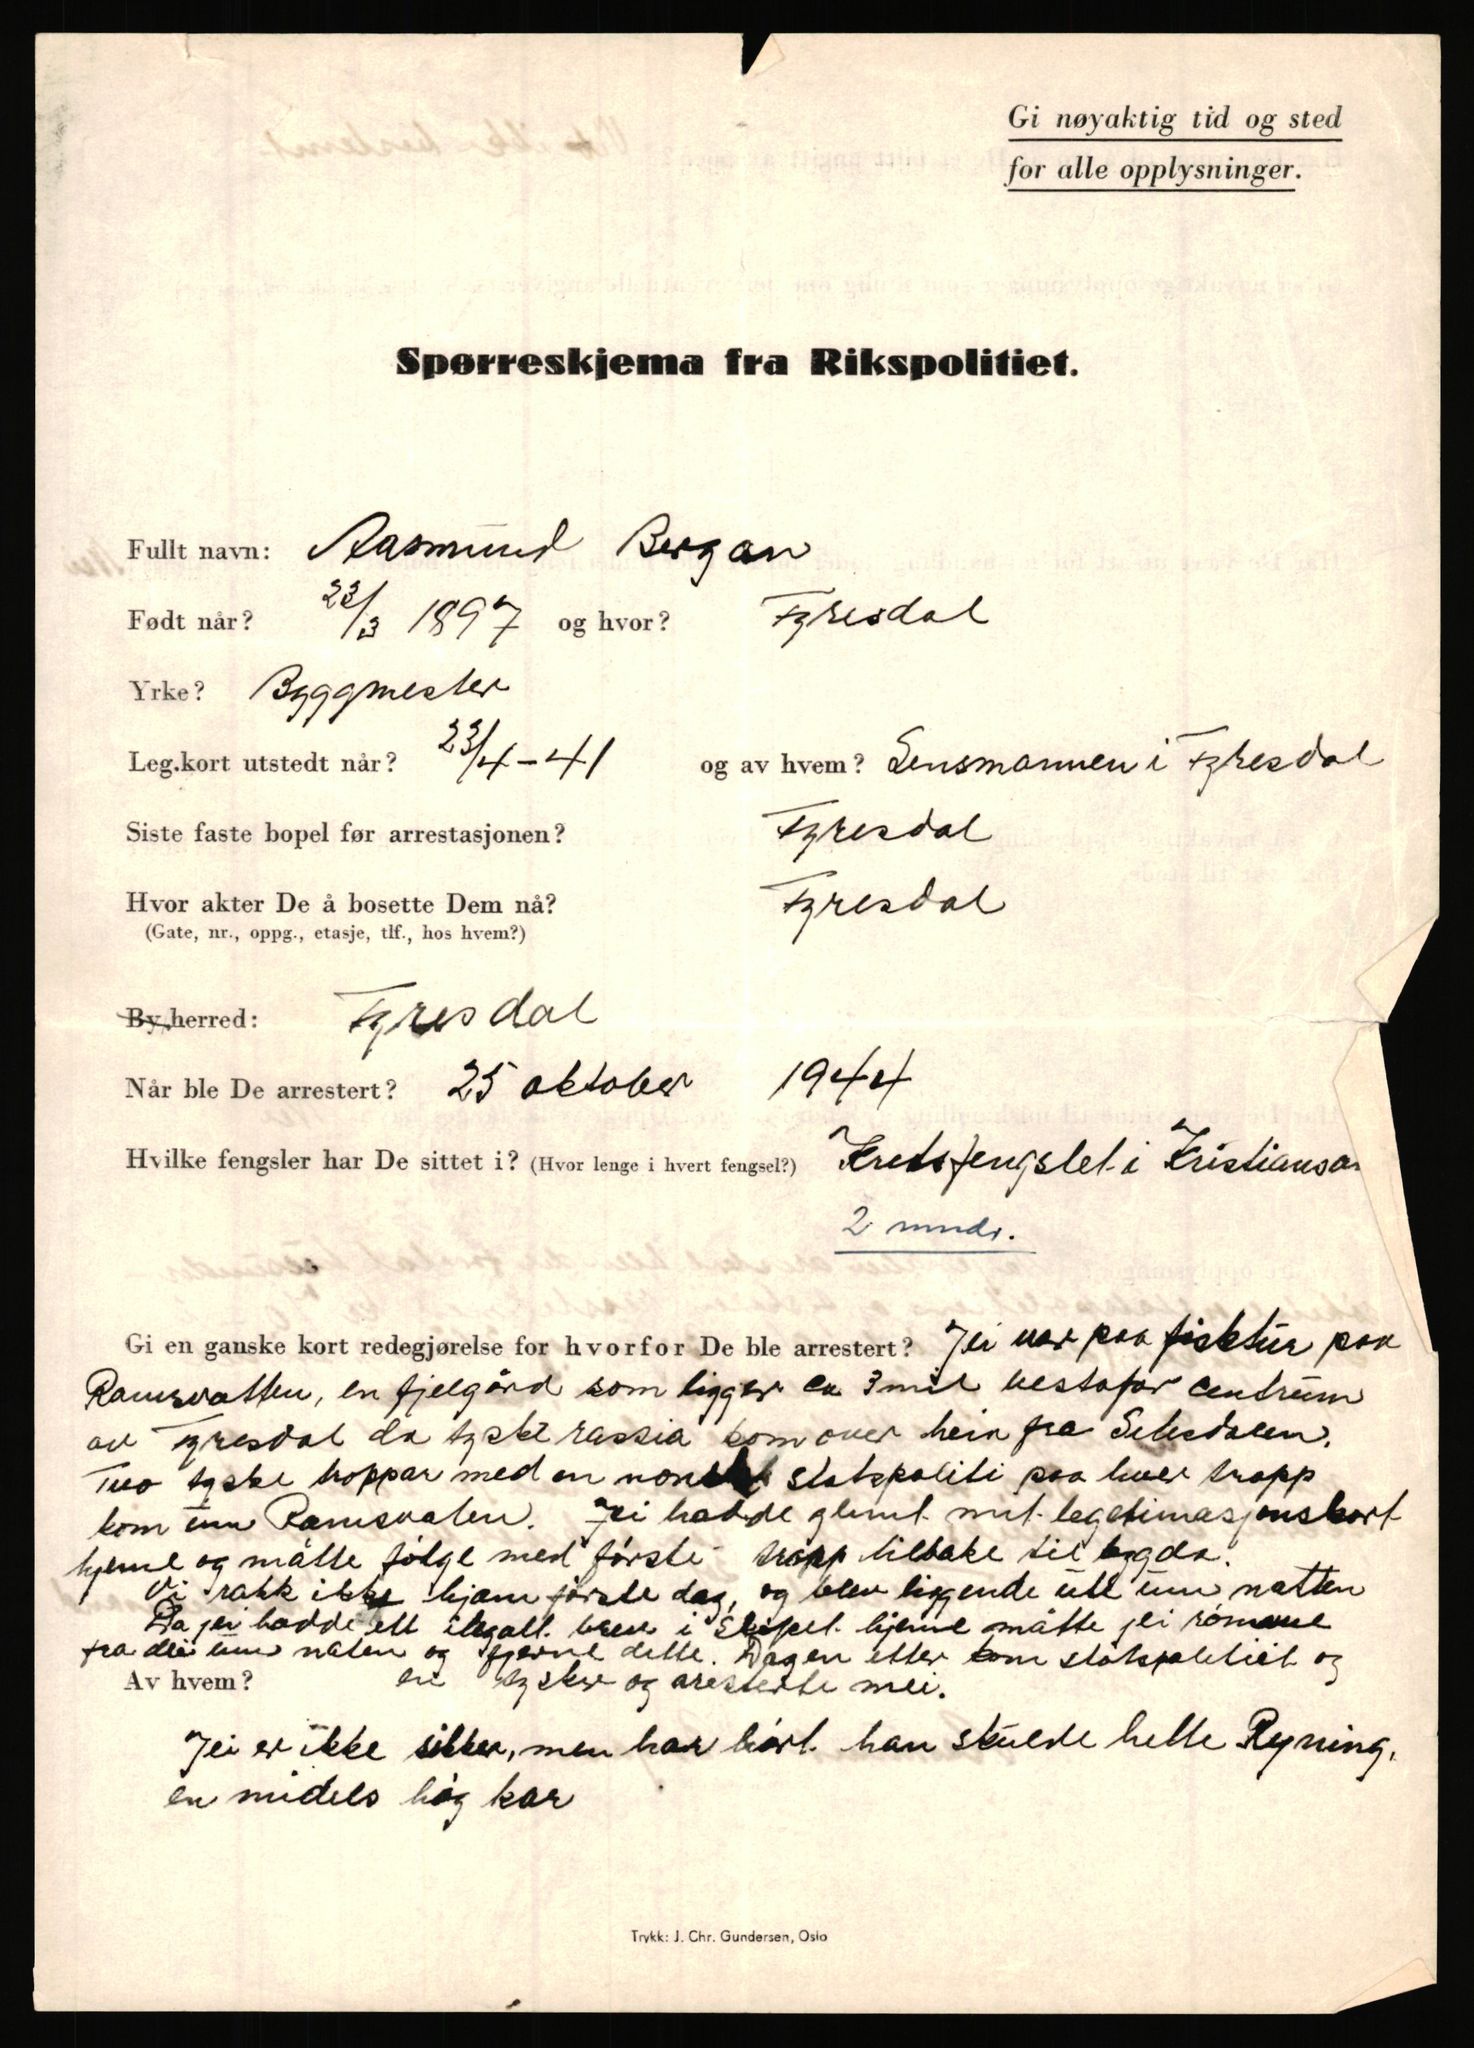 Gi nøyaktig tid og sted
for alle opplysninger.
Spørreskjema fra Rikspolitiet.
Fullt navn: Aasmund Bergan
Født når? 23/3 1897 og hvor? Fyresdal
Yrke? Byggmester
Leg.kort utstedt når? 23/4-41 og av hvem? Lensmannen i Fyresdal
Siste faste bopel før arrestasjonen? Fyresdal
Hvor akter De å bosette Dem nå? Fyresdal
(Gate, nr., oppg., etasje, tlf., hos hvem?)
By, herred: Fyresdal
Når ble De arrestert? 25 oktober 1944
Hvilke fengsler har De sittet i? (Hvor lenge i hvert fengsel?) Kretsfengslet i Kristiansa
2 mndr.
Gi en ganske kort redegjørelse for hvorfor De ble arrestert? Jei var paa fisktur paa
Ramsvatten, en fjelgård som ligger ca 3 mil vestafor centrum
av Fyresdal da tysk rassia kom over heia fra Setesdalen.
Tvo tyske troppar med en norsk statspoliti paa hver tropp
kom um Ramsvaten. Jei hadde glemt mit legetimasjonskort
hjeme og måtte følge med første tropp tilbake til bygda.
Vi rakk ikke hjem første dag, og blev liggende ute um natten
Da jei hadde ett ilegalt brev i skapet hjeme måtte jei römme
fra dei um naten og fjerne dette. Dagen etter kom statspolitiet og
Av hvem? en tysker og aresterte mei.
Jei er ikke sikker, men har hört han skulde hette Ryning,
en midels høg kar
Trykk: J. Chr. Gundersen, Oslo